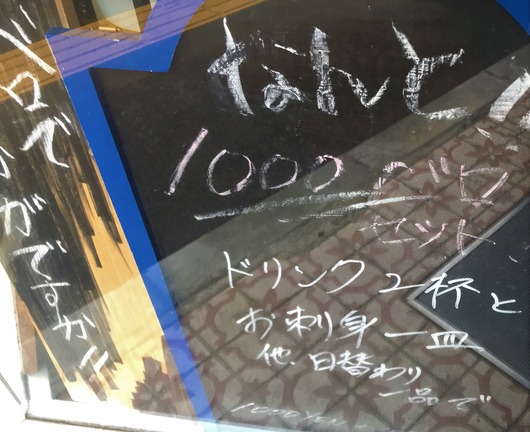 なんと
1000ベロ
セット
ドリンク2杯と
お刺身一皿
他 日替わり
一品で
1000YEN
ベロで
いかがですか!!